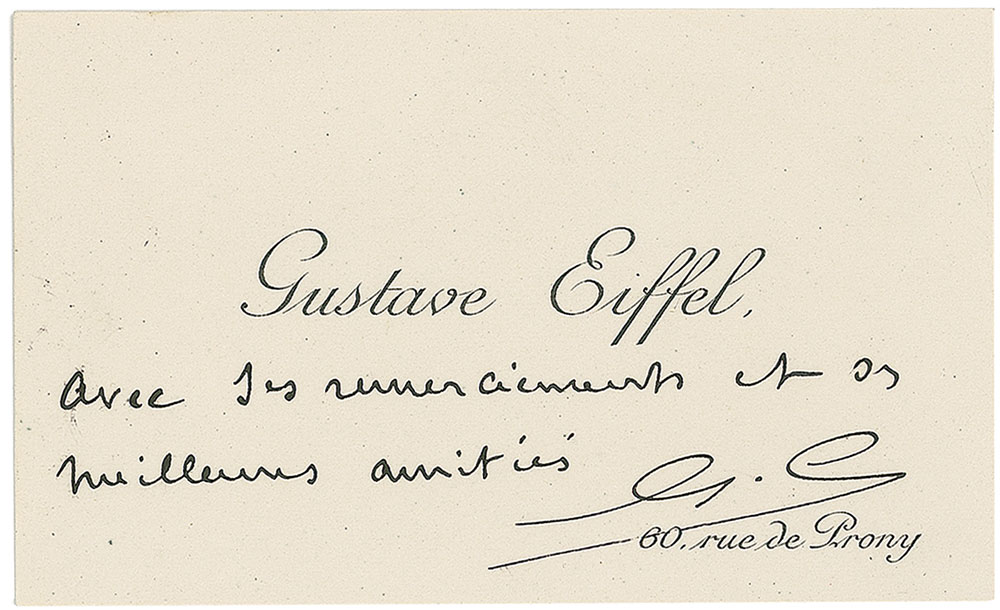 Gustave Eiffel,
avec ses remerciements et ses
meilleures amitiés
G. E
60, rue de Prony